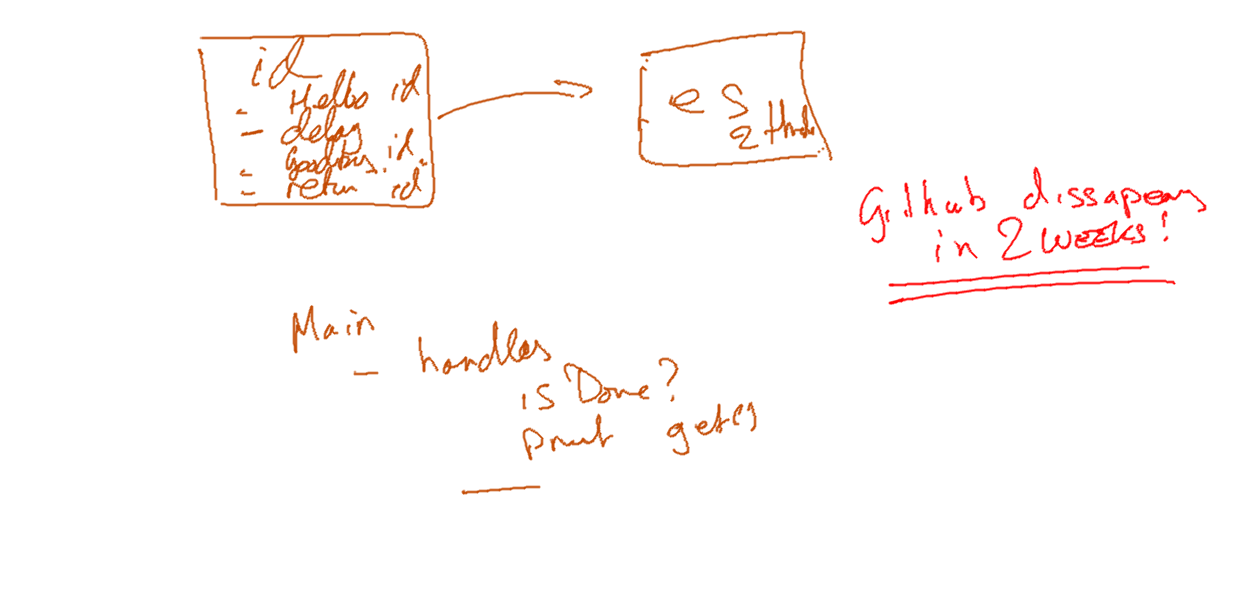 id
- Hello id
- delay
- Goodbye id
- return id
es
2 thrds
Github dissapears
in 2 WEEKS!
Main
- handles
isDone?
print get()